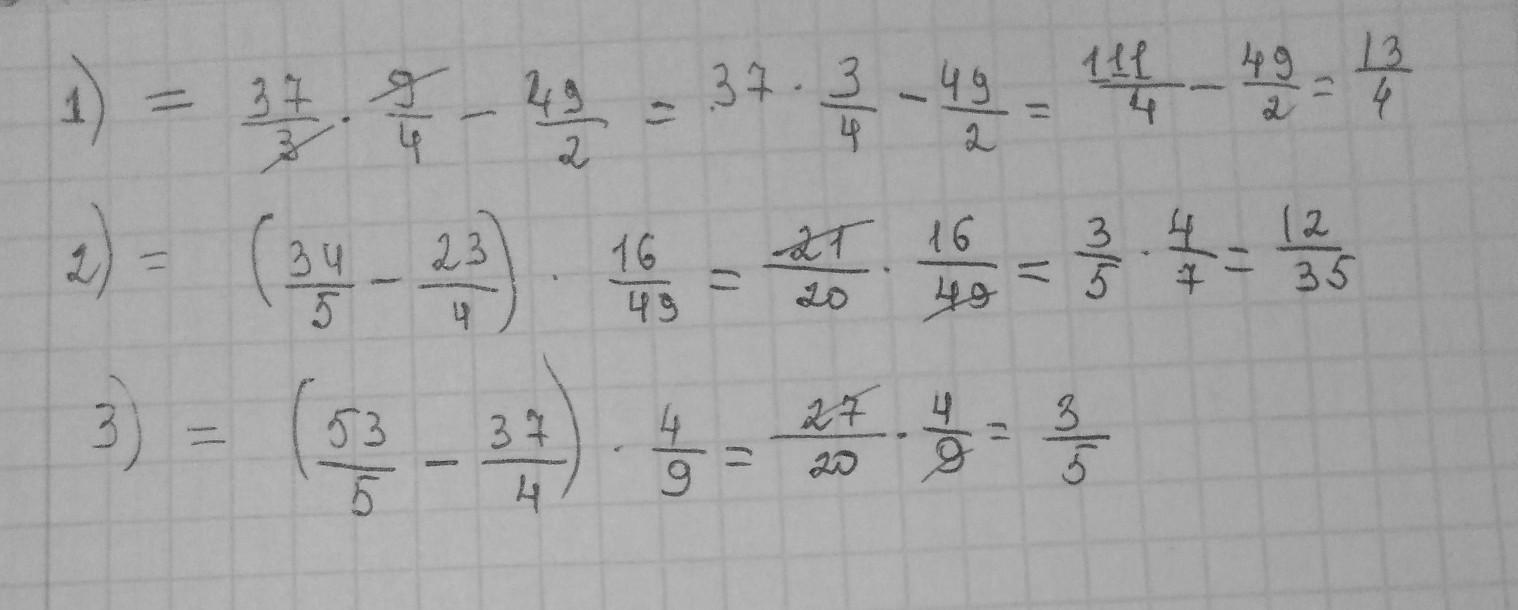 1) = 37/3 · 9/4 - 49/2 = 37 · 3/4 - 49/2 = 111/4 - 49/2 = 13/4
2) = (34/5 - 23/4) · 16/49 = 21/20 · 16/49 = 3/5 · 4/7 = 12/35
3) = (53/5 - 37/4) · 4/9 = 27/20 · 4/9 = 3/5